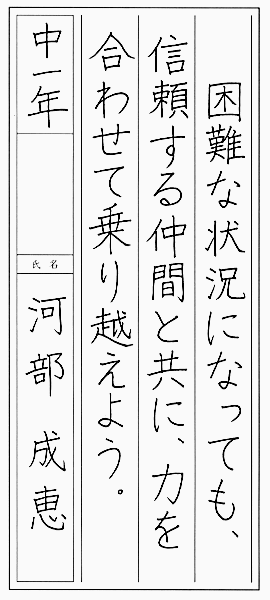 困難な状況になっても、
信頼する仲間と共に、力を
合わせて乗り越えよう。
中一年
氏名
河部 成恵